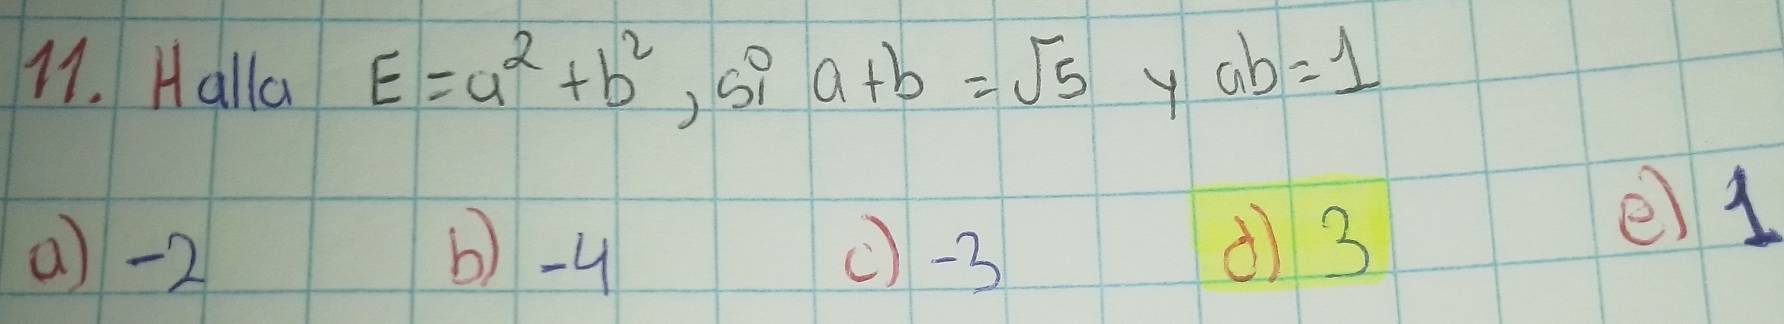 11. Halla E=a²+b², si a+b=√5 y ab=1
a) -2 b) -4 c) -3 d) 3 e) 1